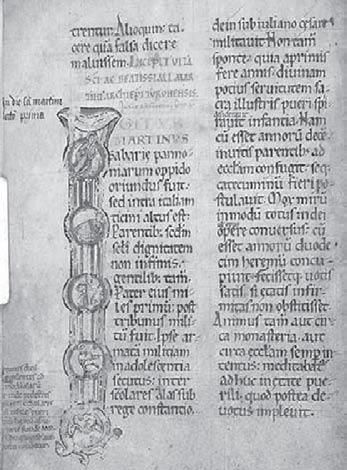 trentur. Alioquin ta-
cere quā falsa dicere
maluissem. INCIPIT VITA
SCI AC BEATISSIMI MAR-
TINI ARCHIEPI TURONENSIS.
In die scī martini
lectio prima
IGITUR
MARTINUS
sabarie panno-
niarum oppido
oriundus fuit.
sed intra italiam
ticini altus est.
Parentib; scdm
scli dignitatem
non infimis.
gentilib; tam̄.
Pater eius mi-
les primū. post
tribunus mili-
tū fuit. Ipse ar-
matā militiam
in adolescentia
secutus. inter
scolares alas sub
rege constantio.
dein sub iuliano cesare
militauit. Non tam̄
sponte. quia a primis
fere annis. diuinam
pocius seruitutem sa-
cra illustris pueri spi-
rauit infantia. Nam
cū esset annorū decē.
inuitis parentib; ad
ecclam confugit. seq;
catecuminū fieri po-
stulauit. Mox mirū
in modū totus in dei
opere conuersus. cū
esset annorū duode-
cim heremū concu-
piuit. fecissetq; uotis
satis. si etatis infir-
mitas non obstitisset.
Animus tam̄ aut cir-
ca monasteria. aut
circa ecclam semp in-
tentus. meditabatur
adhuc in etate pue-
rili. quod postea de-
uotus impleuit.